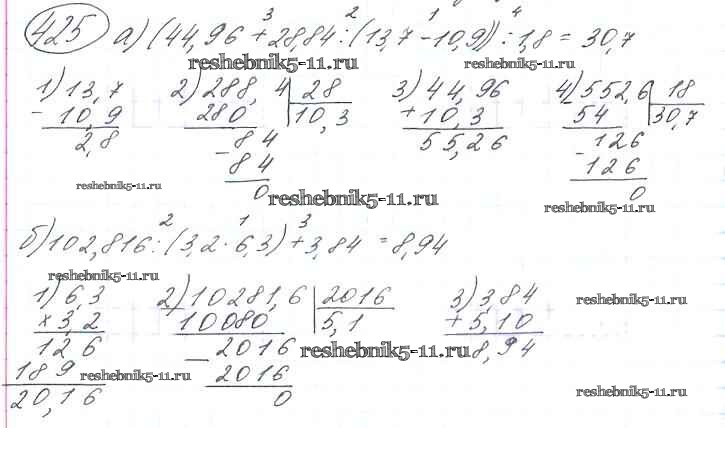 425 а) (44,96 + 28,84 : (13,7 - 10,9)) : 1,8 = 30,7
3 2 1 4
reshebnik5-11.ru reshebnik5-11.ru
1) 13,7 2) 288,4 | 28 3) 44,96 4) 552,6 | 18
- 10,9 280 | 10,3 + 10,3 54 | 30,7
2,8 84 55,26 126
- 84 - 126
0 0
reshebnik5-11.ru reshebnik5-11.ru reshebnik5-11.ru
2 1 3
б) 102,816 : (3,2 · 6,3) + 3,84 = 8,94
reshebnik5-11.ru
1) 6,3 2) 10281,6 | 2016 3) 3,84 reshebnik5-11.ru
x 3,2 10080 | 5,1 + 5,10
126 - 2016 8,94
reshebnik5-11.ru
189 2016
reshebnik5-11.ru
20,16 0
reshebnik5-11.ru